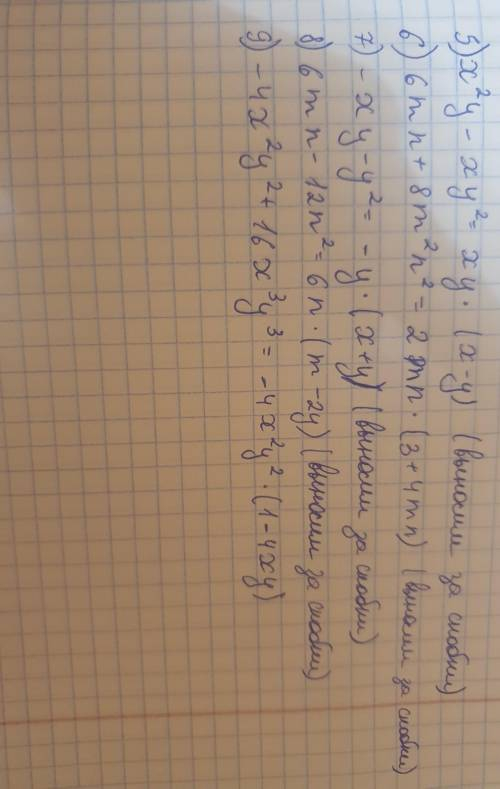 5) x²y - xy² = xy · (x-y) (выносим за скобки)
6) 6mn + 8m²n² = 2mn · (3+4mn) (выносим за скобки)
7) - xy - y² = -y · (x+y) (выносим за скобки)
8) 6mn - 12n² = 6n · (m-2y) (выносим за скобки)
9) - 4x²y² + 16x³y³ = -4x²y² · (1-4xy)